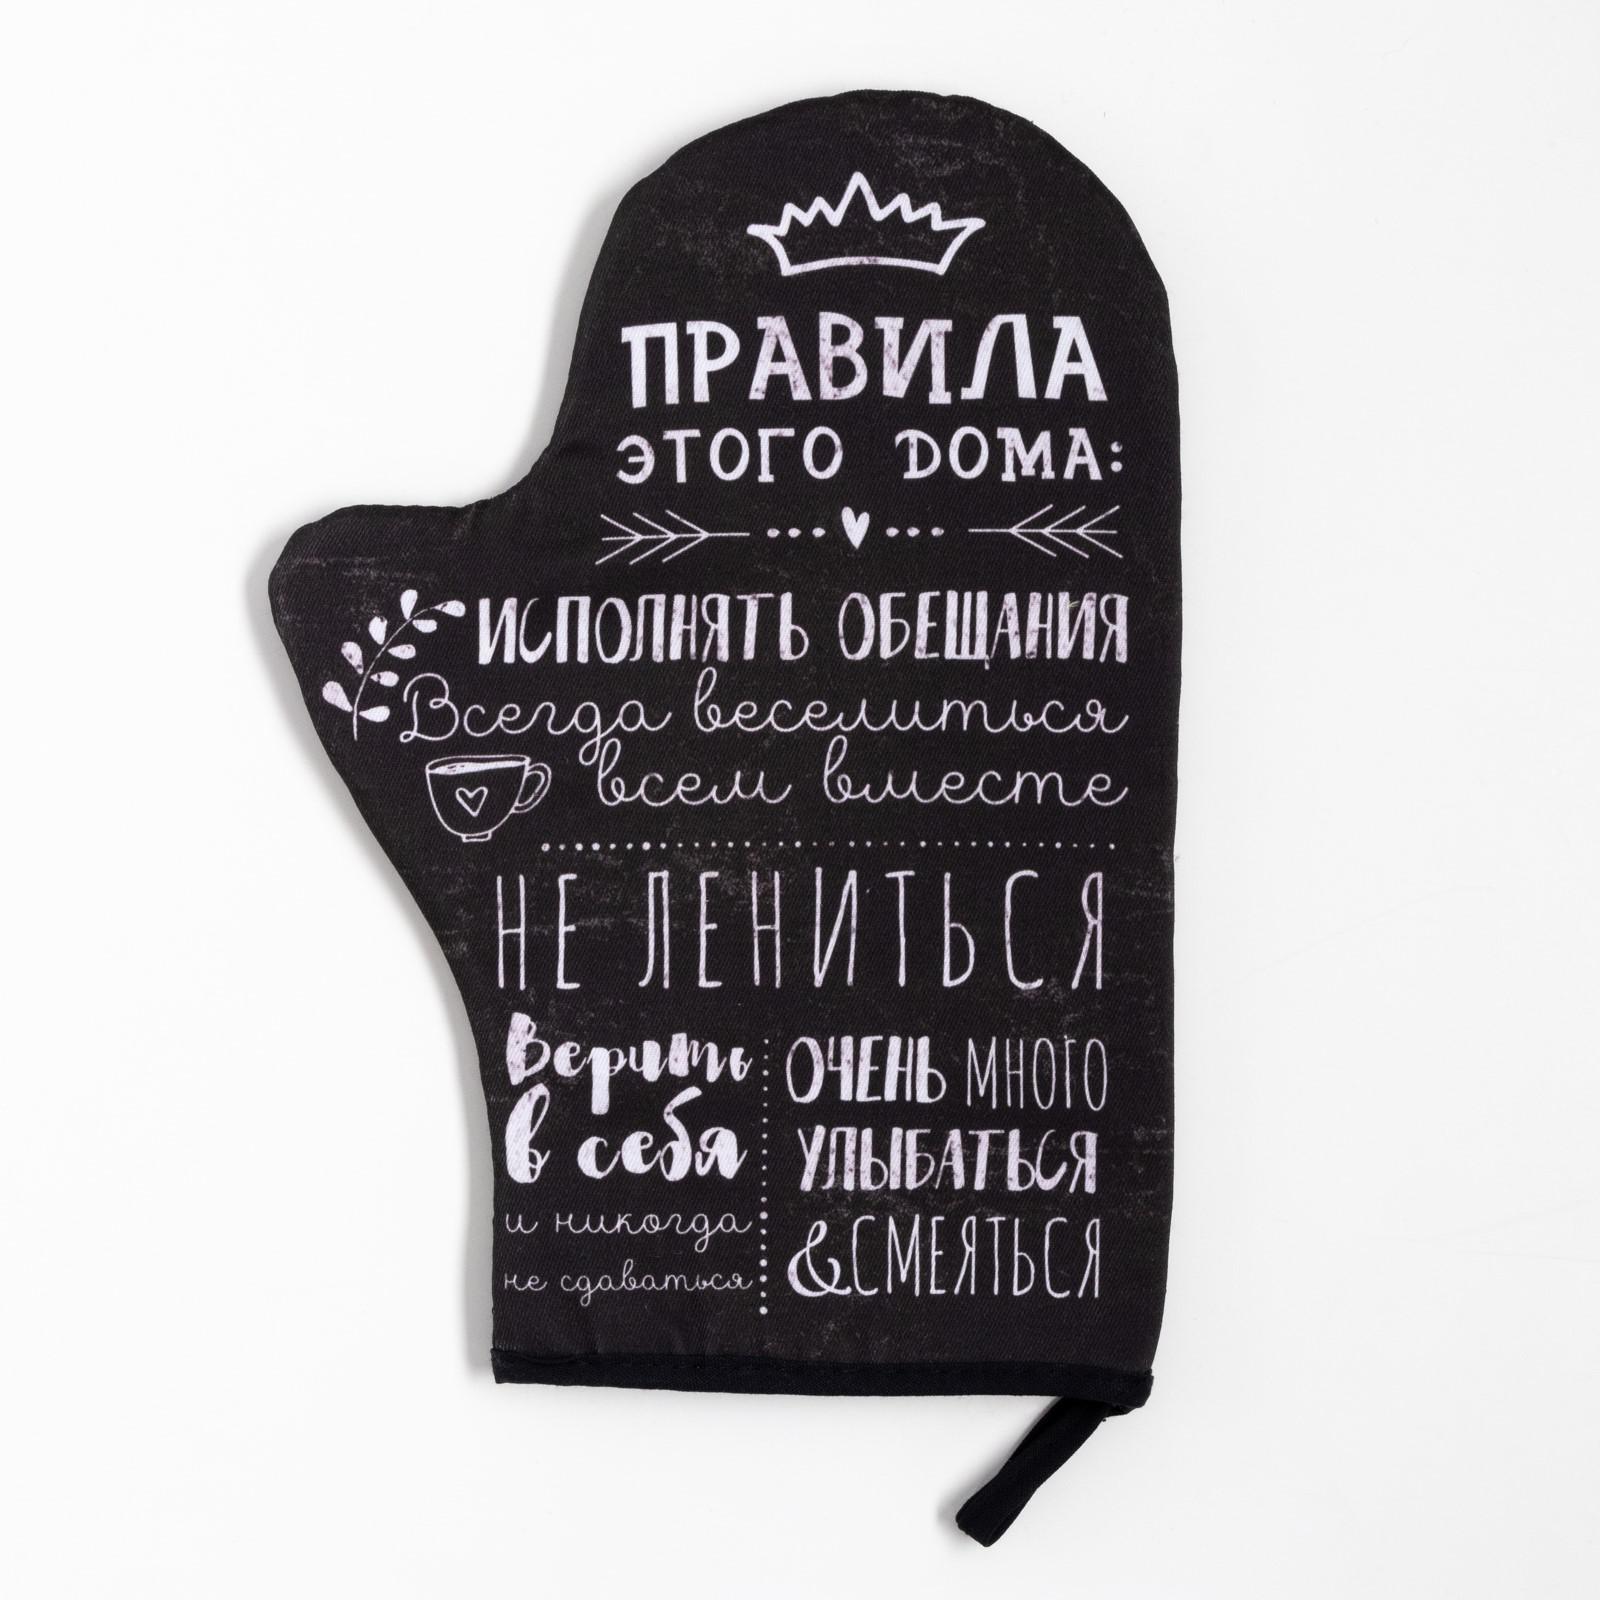 ПРАВИЛА
ЭТОГО ДОМА:
ИСПОЛНЯТЬ ОБЕЩАНИЯ
Всегда веселиться
всем вместе
НЕ ЛЕНИТЬСЯ
Верить
в себя
и никогда
не сдаваться
ОЧЕНЬ МНОГО
УЛЫБАТЬСЯ
&СМЕЯТЬСЯ